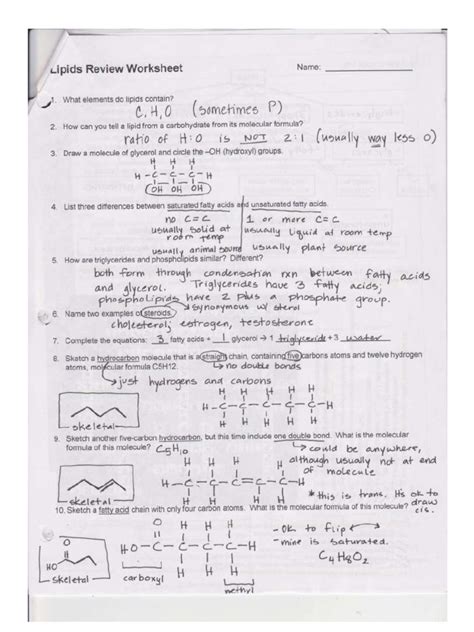 Lipids Review Worksheet
Name:
1. What elements do lipids contain?
C, H, O (sometimes P)
2. How can you tell a lipid from a carbohydrate from its molecular formula?
ratio of H:O is NOT 2:1 (usually way less O)
3. Draw a molecule of glycerol and circle the –OH (hydroxyl) groups.
H H H
H-C-C-C-H
OH OH OH
4. List three differences between saturated fatty acids and unsaturated fatty acids.
no C=C 1 or more C=C
usually solid at room temp usually liquid at room temp
usually animal source usually plant source
5. How are triglycerides and phospholipids similar? Different?
both form through condensation rxn between fatty acids
and glycerol. Triglycerides have 3 fatty acids;
phospholipids have 2 plus a phosphate group.
synonymous w/ sterol
6. Name two examples of steroids.
cholesterol, estrogen, testosterone
7. Complete the equations: 3 fatty acids + 1 glycerol → 1 triglyceride + 3 water
8. Sketch a hydrocarbon molecule that is a straight chain, containing five carbons atoms and twelve hydrogen
atoms, molecular formula C5H12.
→ no double bonds
→ just hydrogens and carbons
H H H H H
H-C-C-C-C-C-H
H H H H H
skeletal
9. Sketch another five-carbon hydrocarbon, but this time include one double bond. What is the molecular
formula of this molecule?
C5H10
→ could be anywhere,
although usually not at end
of molecule
H H H H
H-C-C-C=C-C-H
H H H H
*this is trans. It's ok to
draw cis.
skeletal
10. Sketch a fatty acid chain with only four carbon atoms. What is the molecular formula of this molecule?
O H H H
HO-C-C-C-C-H
H H H
- Ok to flip
- mine is saturated.
C4H8O2
O
HO
skeletal
carboxyl
methyl